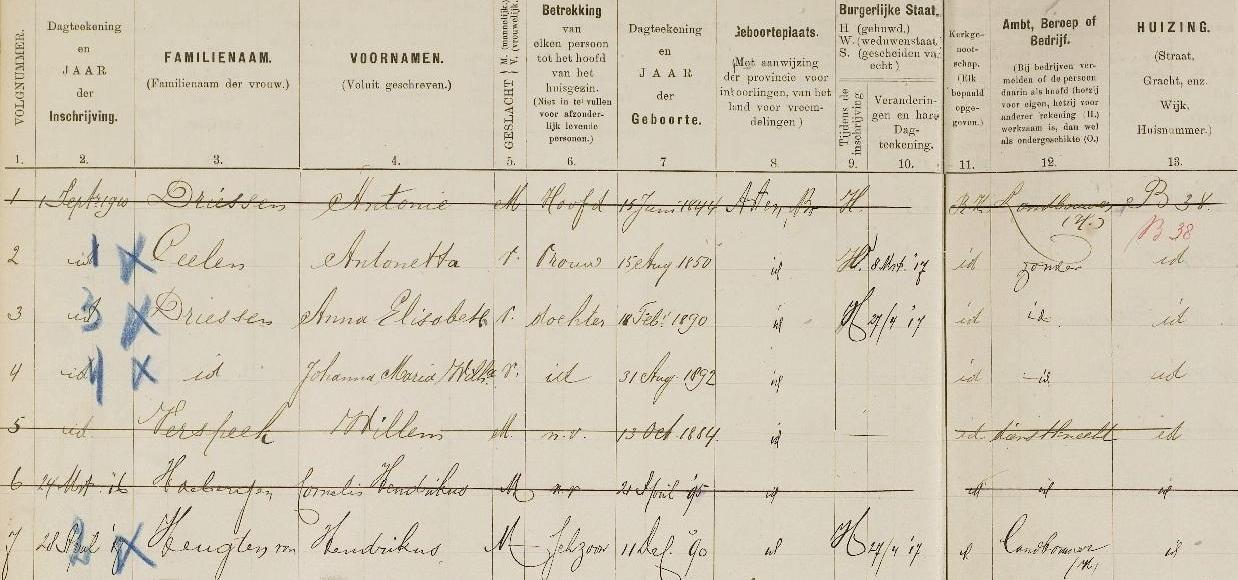 VOLGNUMMER. Dagteekening en JAAR der Inschrijving. FAMILIENAAM. (Familienaam der vrouw.) VOORNAMEN. (Voluit geschreven.) GESLACHT M. (mannelijk.) V. (vrouwelijk.) Betrekking van elken persoon tot het hoofd van het huisgezin. (Niet in te vullen voor afzonderlijk levende personen.) Dagteekening en JAAR der Geboorte. Geboorteplaats. (Met aanwijzing der provincie voor intoorlingen, van het land voor vreemdelingen) Burgerlijke Staat. H (gehuwd.) W. (weduwenstaat S. (gescheiden va echt) Tijdens de inschrijving Veranderingen en hare Dagteekening. Kerkgenootschap. (Elk bepaald opgegeven.) Ambt, Beroep of Bedrijf. (Bij bedrijven vermelden of de persoon daarin als hoofd (hetzij voor eigen, hetzij voor anderer rekening (H.) werkzaam is, dan wel als ondergeschikte (O.) HUIZING. (Straat, Gracht, enz. Wijk. Huisnummer.)
1. 2. 3. 4. 5. 6. 7 8. 9. 10. 11. 12. 13.
1 1 Sept 1910 Driessen Antonie M Hoofd 15 Juni 1844 Asten, Br H. R.K. Landbouwer (H.) B 38.
B 38
2 id 1 X Ceelen Antonetta V. Vrouw 15 Aug 1850 id W. 8 Mrt '17 id zonder id
3 id 3 X Driessen Anna Elisabeth V. dochter 18 Feb. 1890 id H 27/4 '17 id id id
4 id 4 X id Johanna Maria Wilh. V. id 31 Aug 1892 id id id id
5 id Verspeek Willem M. n.v. 13 Oct 1884 id id dienstknecht id
6 24 Mrt '16 Cornelis Hendrikus M n.v 21 April '95 id id id id
7 28 April '17 2 X Heugten van Hendrikus M Schzoon 11 Dec. '90 id H 27/4 '17 id Landbouwer (H) id